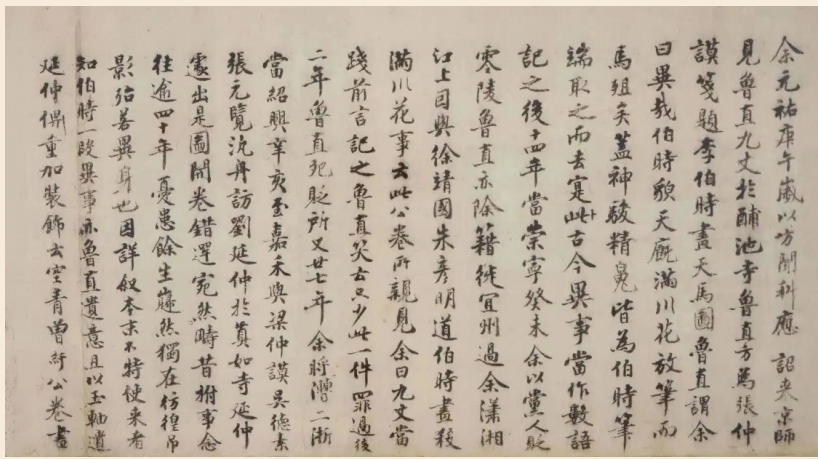 余元祐庚午歲以方聞科應詔来京師
見魯直九丈於酺池寺魯直方為張仲
謨箋題李伯時畫天馬圖魯直謂余
曰異哉伯時貌天廐滿川花放筆而
馬殂矣蓋神駿精魄皆為伯時筆
端取之而去寔此古今異事當作數語
記之後十四年當崇寧癸未余以黨人貶
零陵魯直亦除籍徙宜州過余瀟湘
江上因與徐靖國朱彥明道伯時畫殺
滿川花事云此公卷所親見余曰九丈當
踐前言記之魯直笑云只少此一件罪過後
二年魯直死貶所又廿七年余將漕二浙
當紹興辛亥至嘉禾與梁仲謨吳德素
張元覽泛舟訪劉延仲於真如寺延仲
遽出是圖開卷錯愕宛然疇昔拊事念
往逾四十年憂患餘生巋然獨在彷徨弔
影殆若異身也因詳叙本末不特使来者
知伯時一段異事亦魯直遺意且以玉軸遺
延仲俾重加裝飾云空青曾紆公卷書